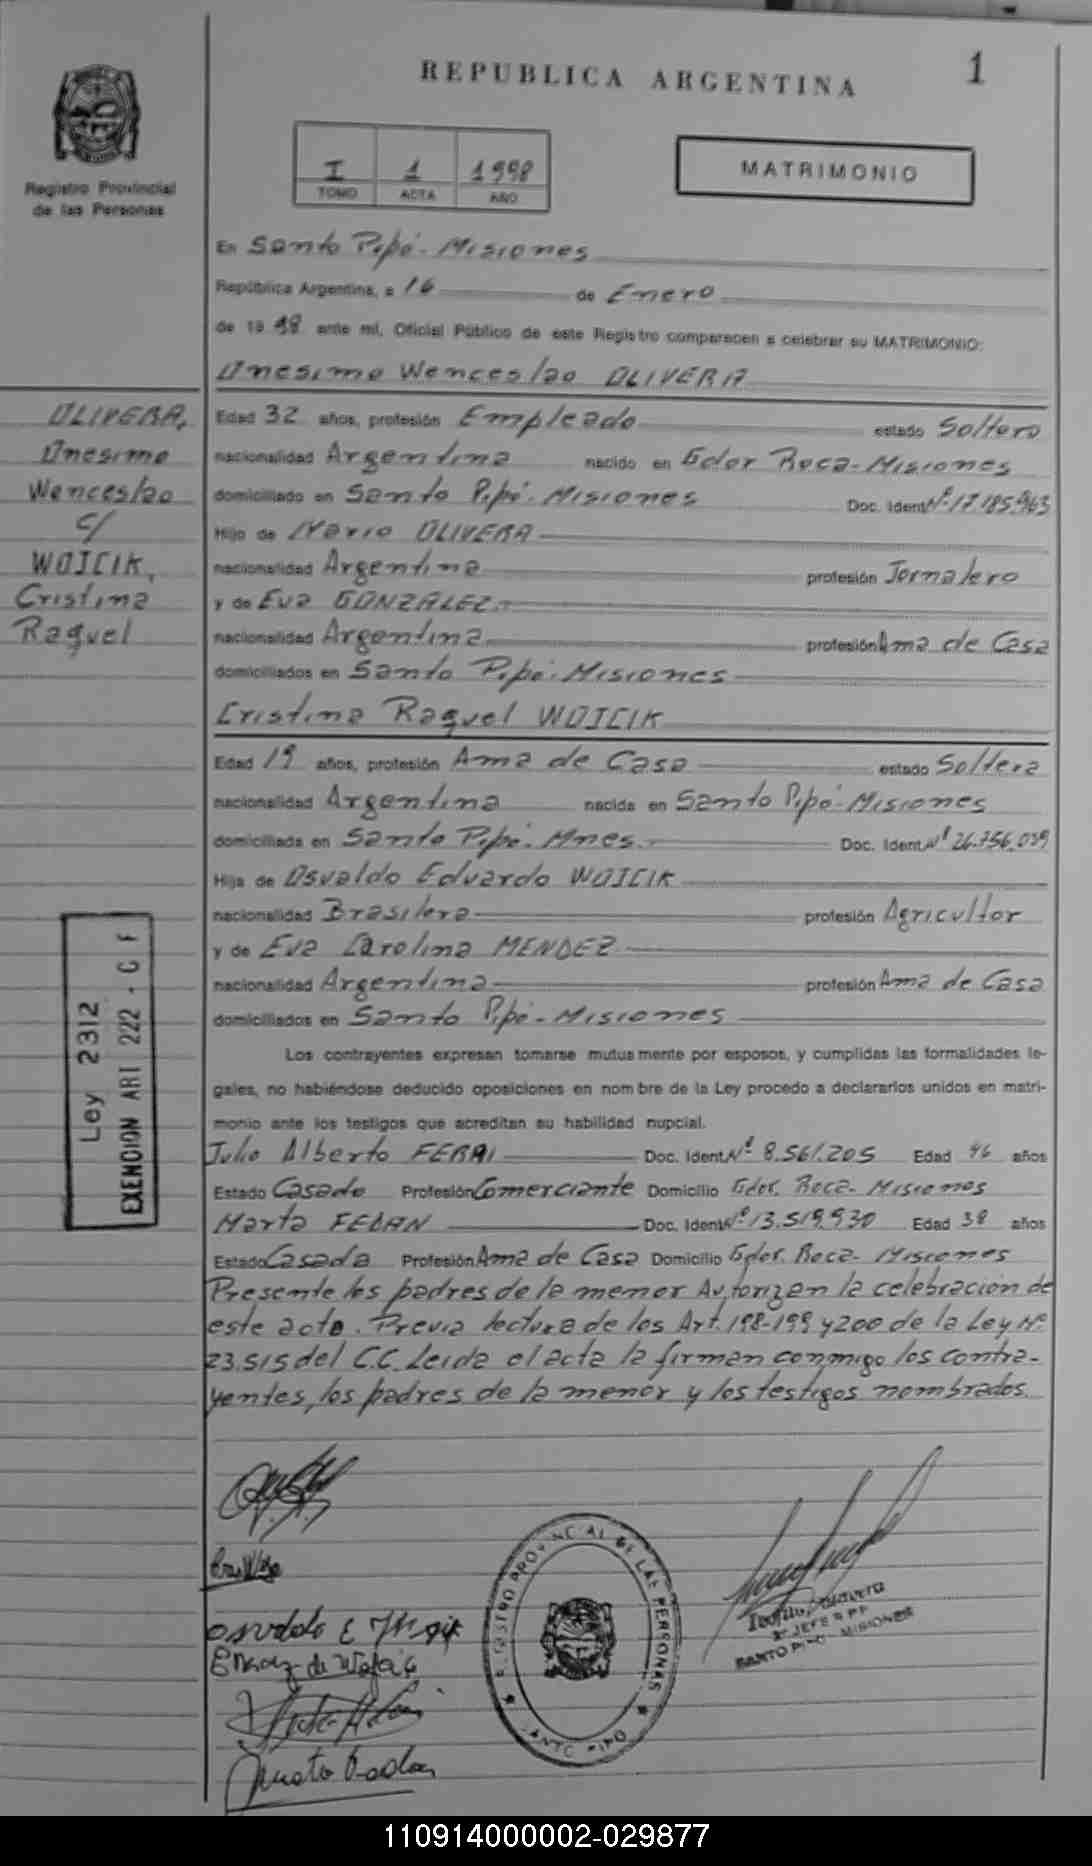 REPUBLICA ARGENTINA
1
Registro Provincial
de las Personas
I 1 1998
TOMO ACTA AÑO
MATRIMONIO
En Santo Pipó - Misiones
República Argentina, a 16 de Enero
de 19 98 ante mí, Oficial Público de este Registro comparecen a celebrar su MATRIMONIO:
Onesimo Wenceslao OLIVERA
OLIVERA,
Onesimo
Wenceslao
c/
WOJCIK,
Cristina
Raquel
Edad 32 años, profesión Empleado estado Soltero
nacionalidad Argentina nacido en Gdor Roca - Misiones
domiciliado en Santo Pipó - Misiones Doc. Ident Nº 17.185.963
Hijo de Mario OLIVERA
nacionalidad Argentina profesión Jornalero
y de Eva GONZALEZ
nacionalidad Argentina profesión Ama de Casa
domiciliados en Santo Pipó - Misiones
Cristina Raquel WOJCIK
Edad 19 años, profesión Ama de Casa estado Soltera
nacionalidad Argentina nacida en Santo Pipó - Misiones
domiciliada en Santo Pipó - Mnes. Doc. Ident Nº 26.756.039
Hija de Osvaldo Eduardo WOJCIK
nacionalidad Brasilera profesión Agricultor
y de Eva Carolina MENDEZ
nacionalidad Argentina profesión Ama de Casa
domiciliados en Santo Pipó - Misiones
Ley 2312
EXENCION ART 222 - C F
Los contrayentes expresan tomarse mutuamente por esposos, y cumplidas las formalidades le-
gales, no habiéndose deducido oposiciones en nombre de la Ley procedo a declararlos unidos en matri-
monio ante los testigos que acreditan su habilidad nupcial.
Julio Alberto FERRI Doc. Ident Nº 8.561.205 Edad 46 años
Estado Casado Profesión Comerciante Domicilio Gdor. Roca - Misiones
Marta FEDAN Doc. Ident Nº 13.519.930 Edad 38 años
Estado Casada Profesión Ama de Casa Domicilio Gdor. Roca - Misiones
Presente los padres de la menor Autorizan la celebración de
este acto. Previa lectura de los Art. 198-199 y 200 de la Ley Nº
23.515 del C.C. Leida el acta la firman conmigo los contra-
yentes, los padres de la menor y los testigos nombrados.
REGISTRO PROVINCIAL DE LAS PERSONAS
SANTO PIPO
JEFE R PP
SANTO PIPO - MISIONES
110914000002-029877